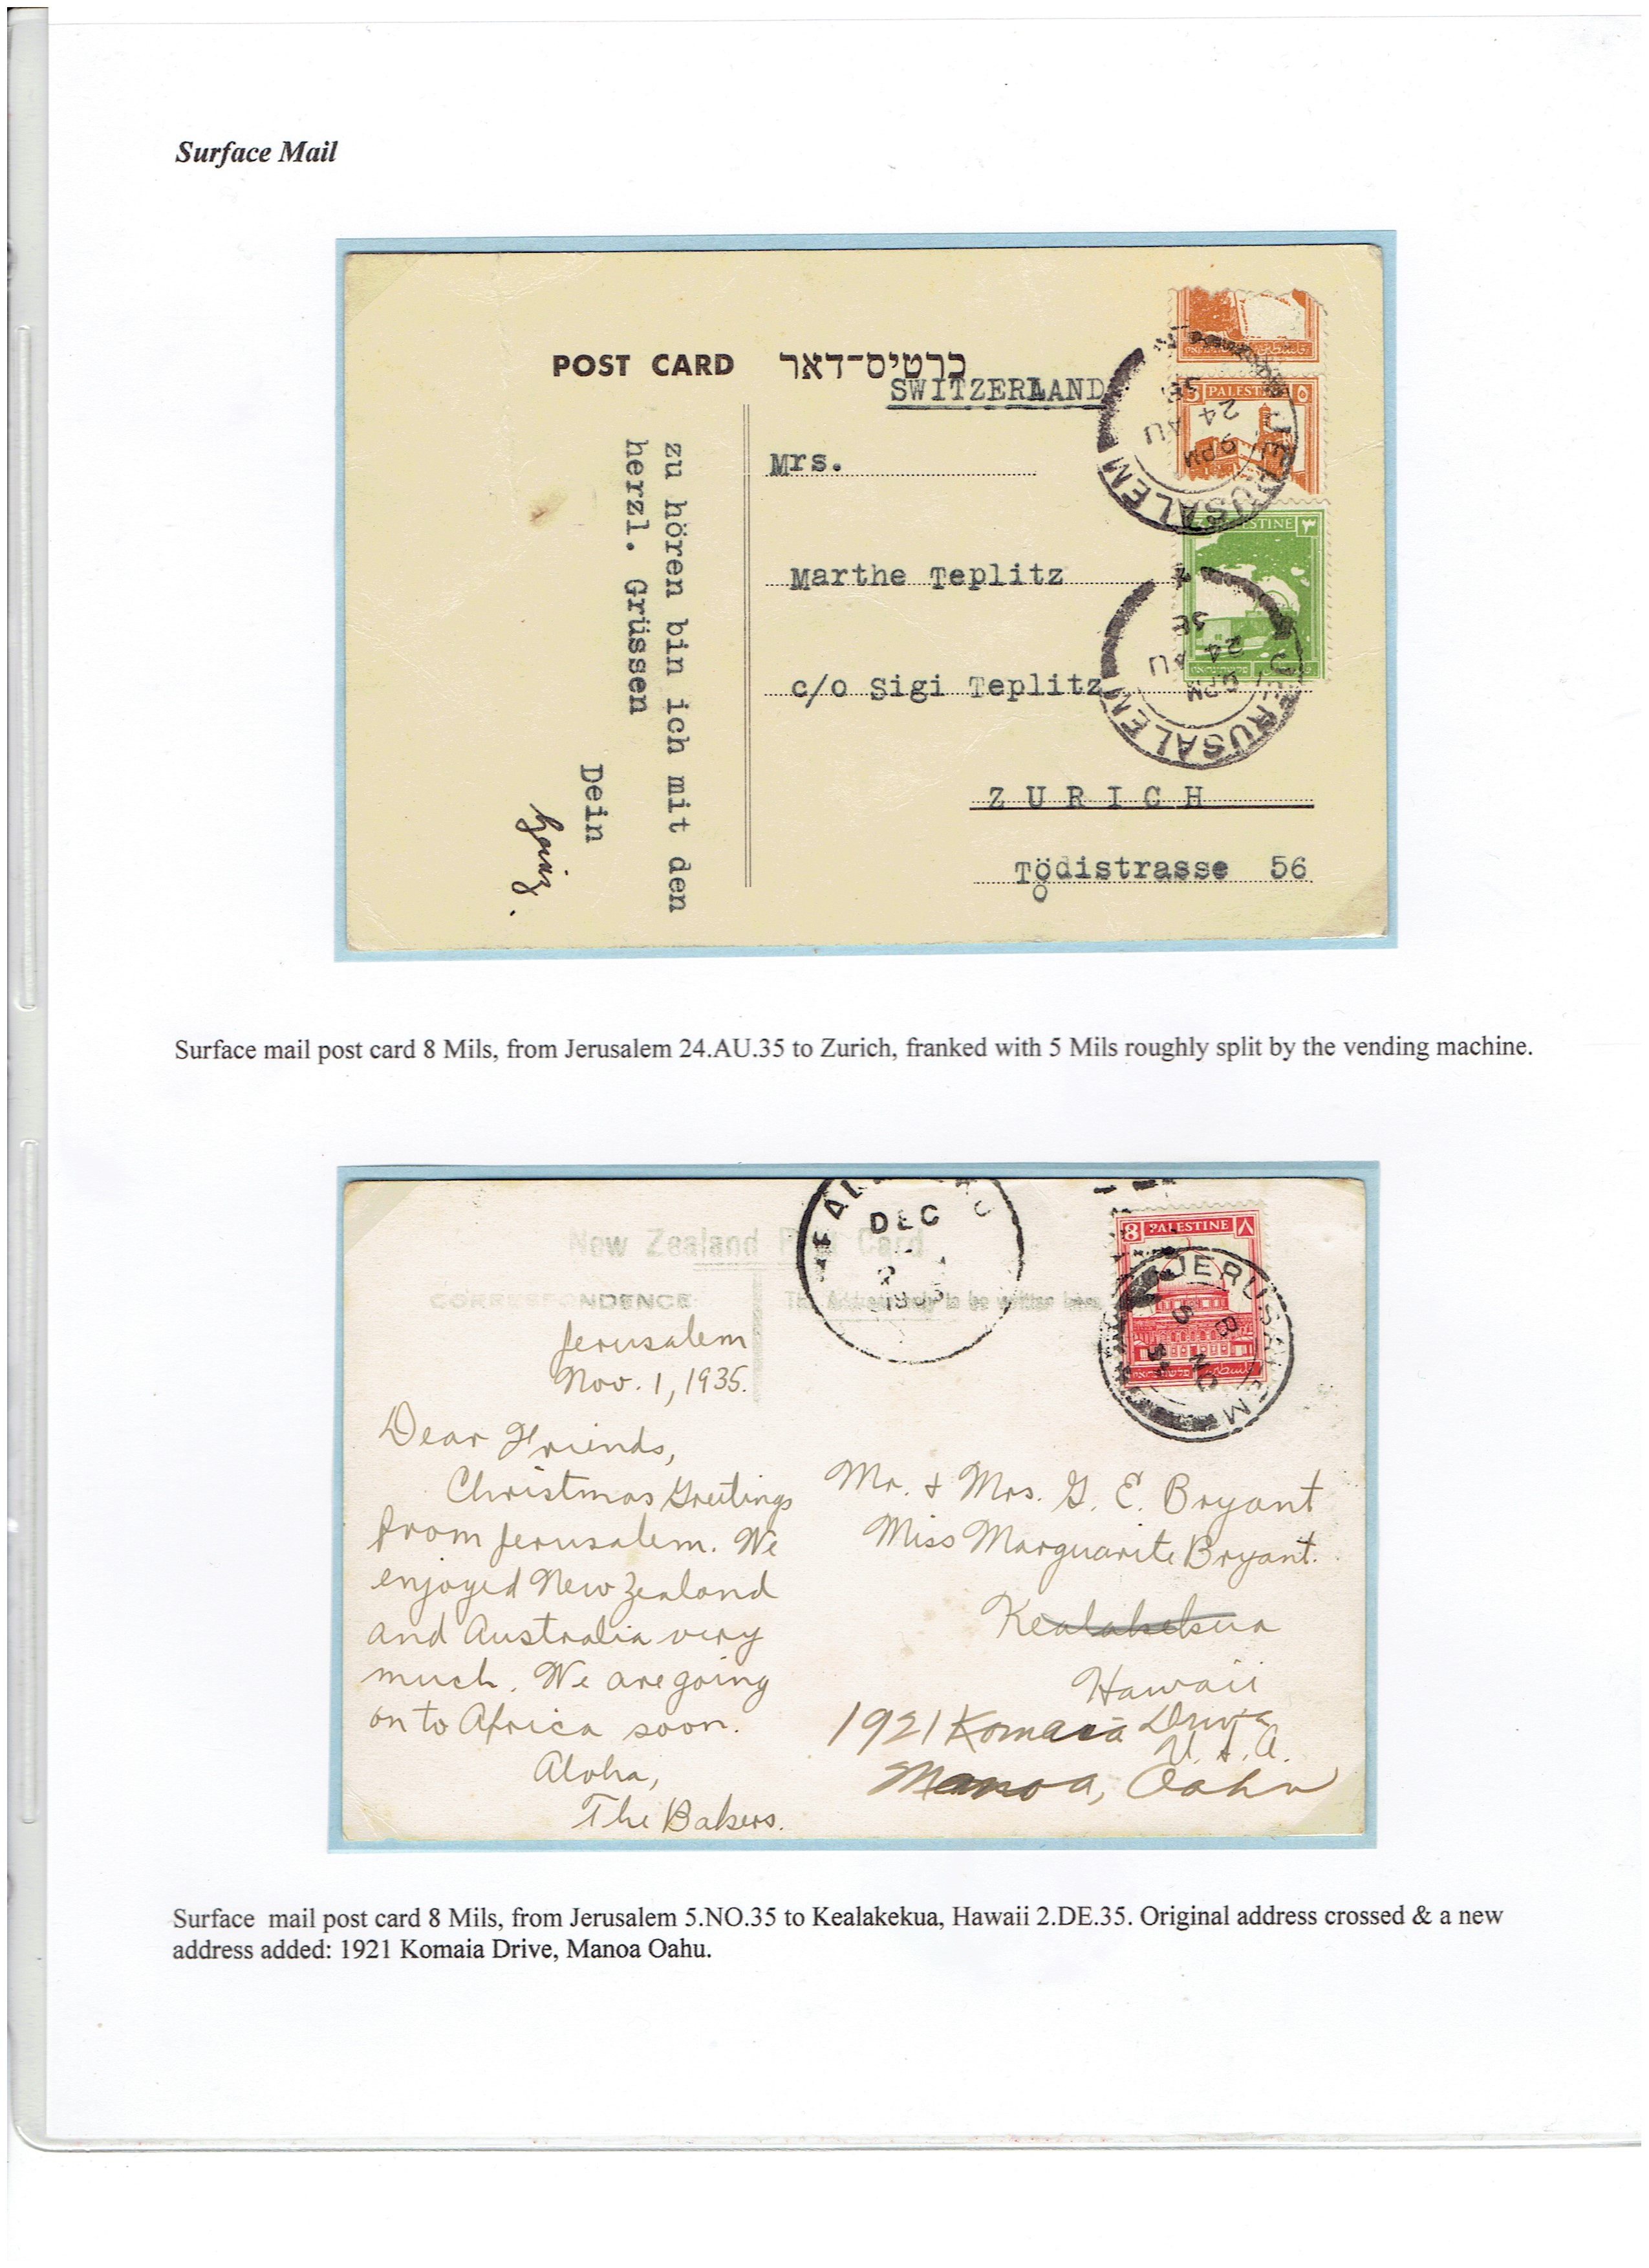 Surface Mail
POST CARD כרטיס-דאר
SWITZERLAND
Mrs.
Marthe Teplitz
c/o Sigi Teplitz
ZURICH
Tödistrasse 56
zu hören bin ich mit den
herzl. Grüssen
Dein
Heinz.
PALESTINE ٥
JERUSALEM
9 PM
24 AU
3 PALESTINE ٣
JERUSALEM
9 PM
24 AU
Surface mail post card 8 Mils, from Jerusalem 24.AU.35 to Zurich, franked with 5 Mils roughly split by the vending machine.
New Zealand Post Card
CORRESPONDENCE
The Address only to be written here.
DEC
2
1935
8 PALESTINE ٨
JERUSALEM
Jerusalem
Nov. 1, 1935.
Dear Friends,
Christmas Greetings
from Jerusalem. We
enjoyed New Zealand
and Australia very
much. We are going
on to Africa soon.
Aloha,
The Bakers.
Mr. & Mrs. G. E. Bryant
Miss Marguarite Bryant.
Kealakekua
Hawaii
1921 Komaia Drive
U.S.A.
Manoa, Oahu
Surface mail post card 8 Mils, from Jerusalem 5.NO.35 to Kealakekua, Hawaii 2.DE.35. Original address crossed & a new
address added: 1921 Komaia Drive, Manoa Oahu.